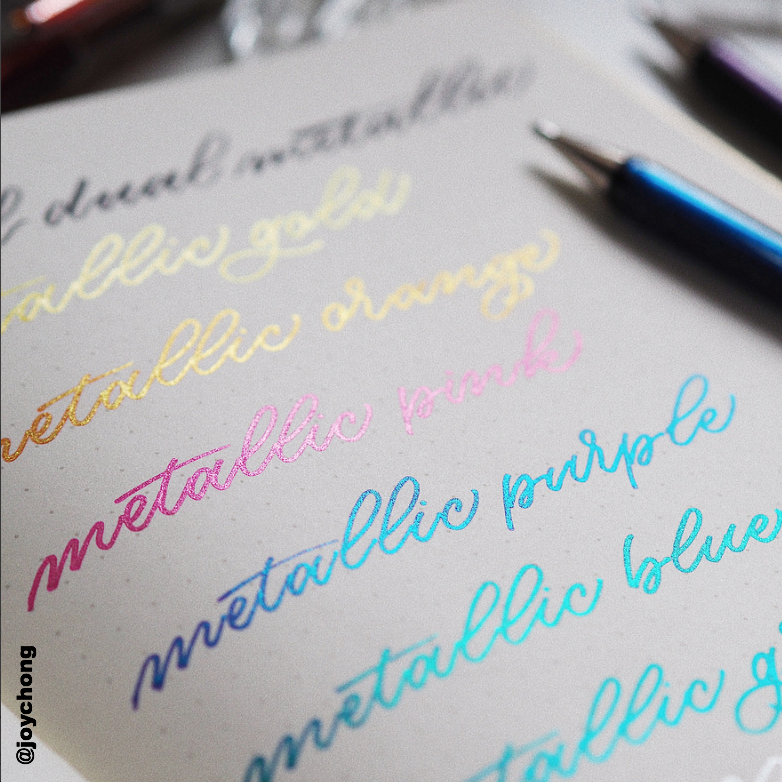 dual metallic
metallic gold
metallic orange
metallic pink
metallic purple
metallic blue
metallic
@joychong